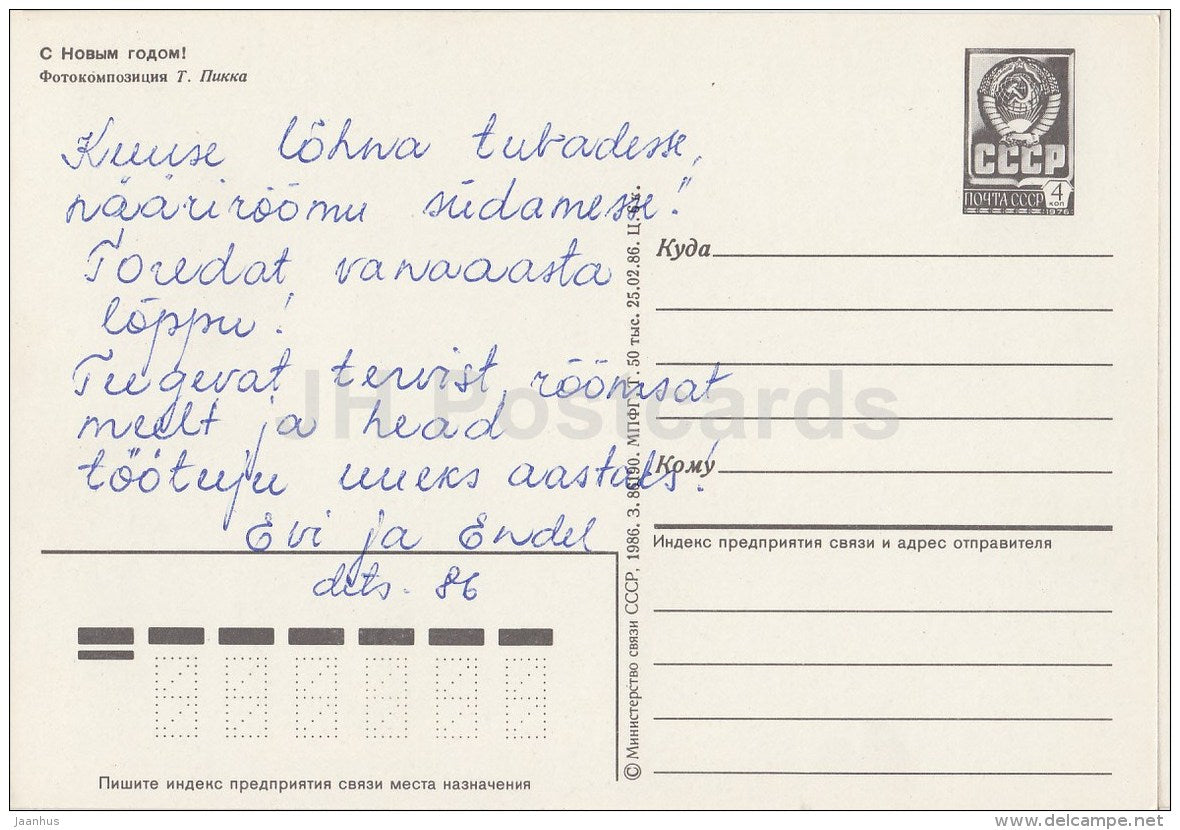 С Новым годом!
Фотокомпозиция Т. Пикка
СССР
ПОЧТА СССР
4
КОП
1976
Kuuse lõhna tubadesse,
näärirõõmu südamesse!"
Toredat vanaaasta
lõppu!
Tugevat tervist, rõõmsat
meelt ja head
töötuju uueks aastaks!
Evi ja Endel
dets. 86
Куда
Кому
Индекс предприятия связи и адрес отправителя
© Министерство связи СССР, 1986. З. 86190. МПФГ. Т. 50 тыс. 25.02.86. Ц.
Пишите индекс предприятия связи места назначения
JH Postcards
Jaanhus
www.delcampe.net